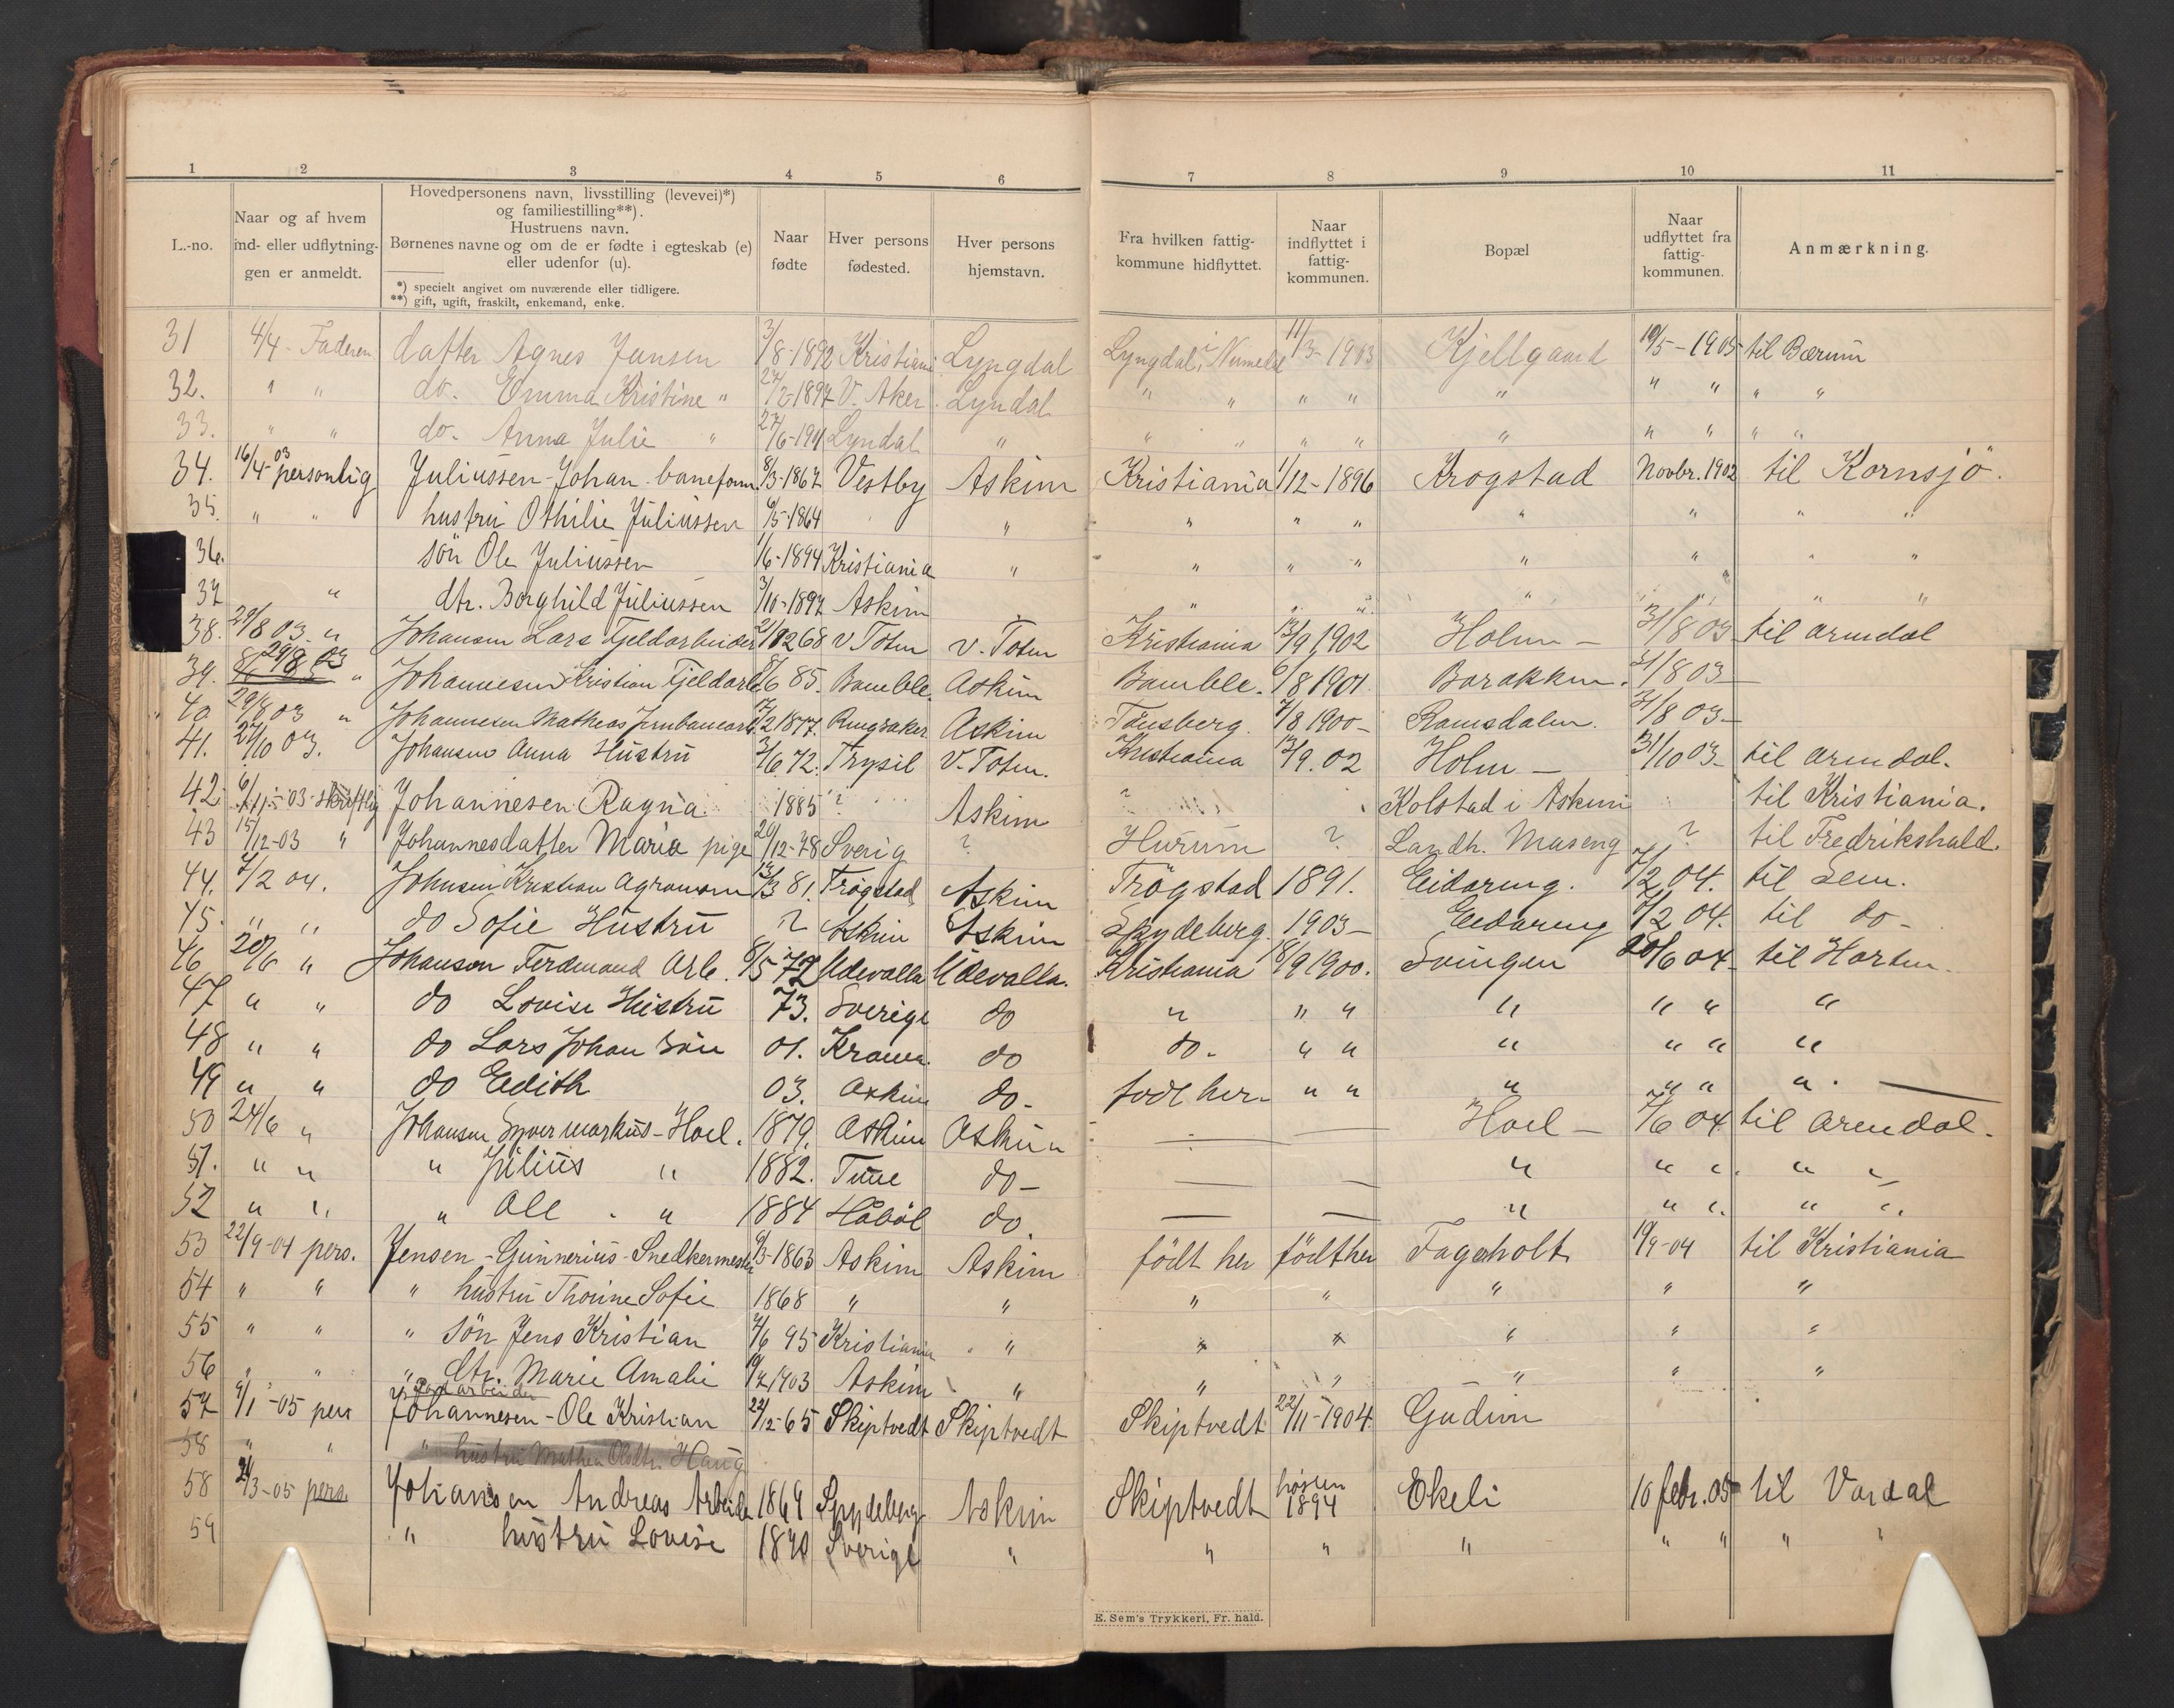 1 2 3 4 5 6 7 8 9 10 11
L.-no.
Naar og af hvem ind- eller udflytningen er anmeldt.
Hovedpersonens navn, livsstilling (levevei)*) og familiestilling**).
Hustruens navn.
Børnenes navne og om de er fødte i egteskab (e) eller udenfor (u).
*) specielt angivet om nuværende eller tidligere.
**) gift, ugift, fraskilt, enkemand, enke.
Naar fødte
Hver persons fødested.
Hver persons hjemstavn.
Fra hvilken fattigkommune hidflyttet.
Naar indflyttet i fattigkommunen.
Bopæl
Naar udflyttet fra fattigkommunen.
Anmærkning.
31 4/4 - Faderen datter Agnes Jansen 3/8-1892 Kristiania Lyngdal Lyngdal i Numedal 11/3-1903 Kjellgaard 10/5-1905 til Bærum
32. " " do. Emma Kristine " 24/2-1897 V. Aker Lyndal " " " " " " " " "
33. " " do. Anna Julie " 27/6-1901 Lyndal " " " " " " " " " "
34. 16/4 03 personlig Juliussen Johan baneform. 8/3-1867 Vestby Askim Kristiania 1/12-1896 Krogstad Novbr. 1902 til Kornsjö.
35. " " hustru Othilie Juliussen 6/5-1864 " " " " " " " "
36. sön Ole Juliussen 1/6-1894 Kristiania " " " " " " " "
37 " dtr. Borghild Juliussen 3/10-1897 Askim " " " " " " "
38. 29/8 03. " Johansen Lars Fjeldarbeider 2/12 68 V Toten V. Toten Kristiania 13/9 1902 Holm - 31/8 03 til Arendal
39. 29/8 03 " Johannesen Kristian Fjeldarb. 8/6 85. Bamble. Askim Bamble. 6/8 1901 Barakken. 31/8 03
40. 29/8 03 " Johannesen Mathias Jernbanearb. 7/2 1877. Ringsaker Askim Tønsberg. 7/8 1900- Ramsdalen. 31/8 03-
41. 27/10 03. Johansen Anna Hustru 3/6 72. Trysil V. Toten. Kristiania 13/9. 02 Holm - 31/10 03- til Arendal.
42. 6/11-03 - skriftlig Johannesen Ragna. 1885 ? Askim ? Kolstad i Askim til Kristiania.
43 15/12-03 " Johannesdatter Maria pige 20/12-78 Sverig ? Hurum ? Landh. Maseng ? til Fredrikshald.
44. 7/2 04. Johnsen Kristian Agronom 13/3 81. Trøgstad Askim Trögstad 1891. Eidareng. 7/2 04. til Sem.
45. " " do Sofie Hustru ? Askim Askim Spydeberg. 1903- Eidareng 7/2 04. til do-
46 20/6 " Johanson Ferdinand Arb. 8/5 72 Udevalla Udevalla. Kristiania 18/9 1900. Svingen 20/6 04- til Horten.
47 " " do Lovise Hustru 73. Sverige do " " " " " " "
48 " " do Lars Johan Søn 01. Krania. do do. " " " " " "
49 " " do Edith 03. Askim do- født her. " " " " " " .
50 24/6 " Johansen Syver Markus - Hoel. 1879. Askim Askim Hoel - 7/6 04 til Arendal.
51. " " " Julius " 1882. Tune do- " " " " "
52 " " " Ole . " 1884 Håböl do. " " " " "
53 22/9-04 pers. Jensen - Gunnerius - Snedkermester 9/3-1863 Askim Askim födt her födt her Fagerholt 19/9-04 til Kristiania
54 " " " hustru Thorine Sofie 1868 " " " " " " "
55 " " " sön Jens Kristian 4/6 95 Kristiania " " " " " "
56 " " " dtr. Marie Amalie 19/7 1903 Askim " " " " " "
57 9/1-05 pers Johannesen - Ole Kristian 24/12-65 Skiptvedt Skiptvedt Skiptvedt 22/11-1904 Gudim
58 " " " hustru Mathea Olsdtr. Haug
58 21/3-05 pers. Johansen Andreas Arbeider 1869 Spydeberg Askim Skiptvedt høsten 1894 Ekeli 10 febr. 05 til Vardal
59 " hustru Lovise 1870 Sverige " " " " " " " "
E. Sem's Trykkeri, Fr. hald.